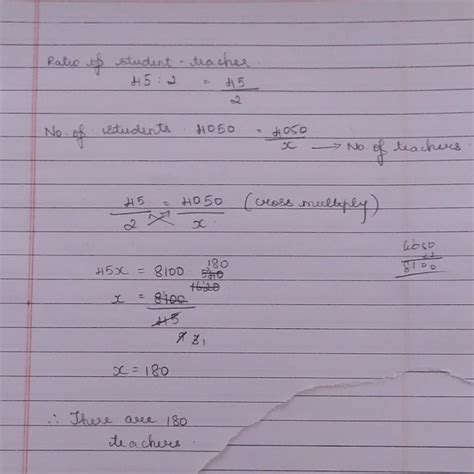 Ratio of student - teacher.
45 : 2 = 45
2
No. of students 4050 = 4050
x → No of teachers.
45 = 4050 (cross multiply)
2 x
4050
8100
45x = 8100 180
540
x = 8100 1620
45
9 3 1
x = 180
∴ There are 180
teachers.